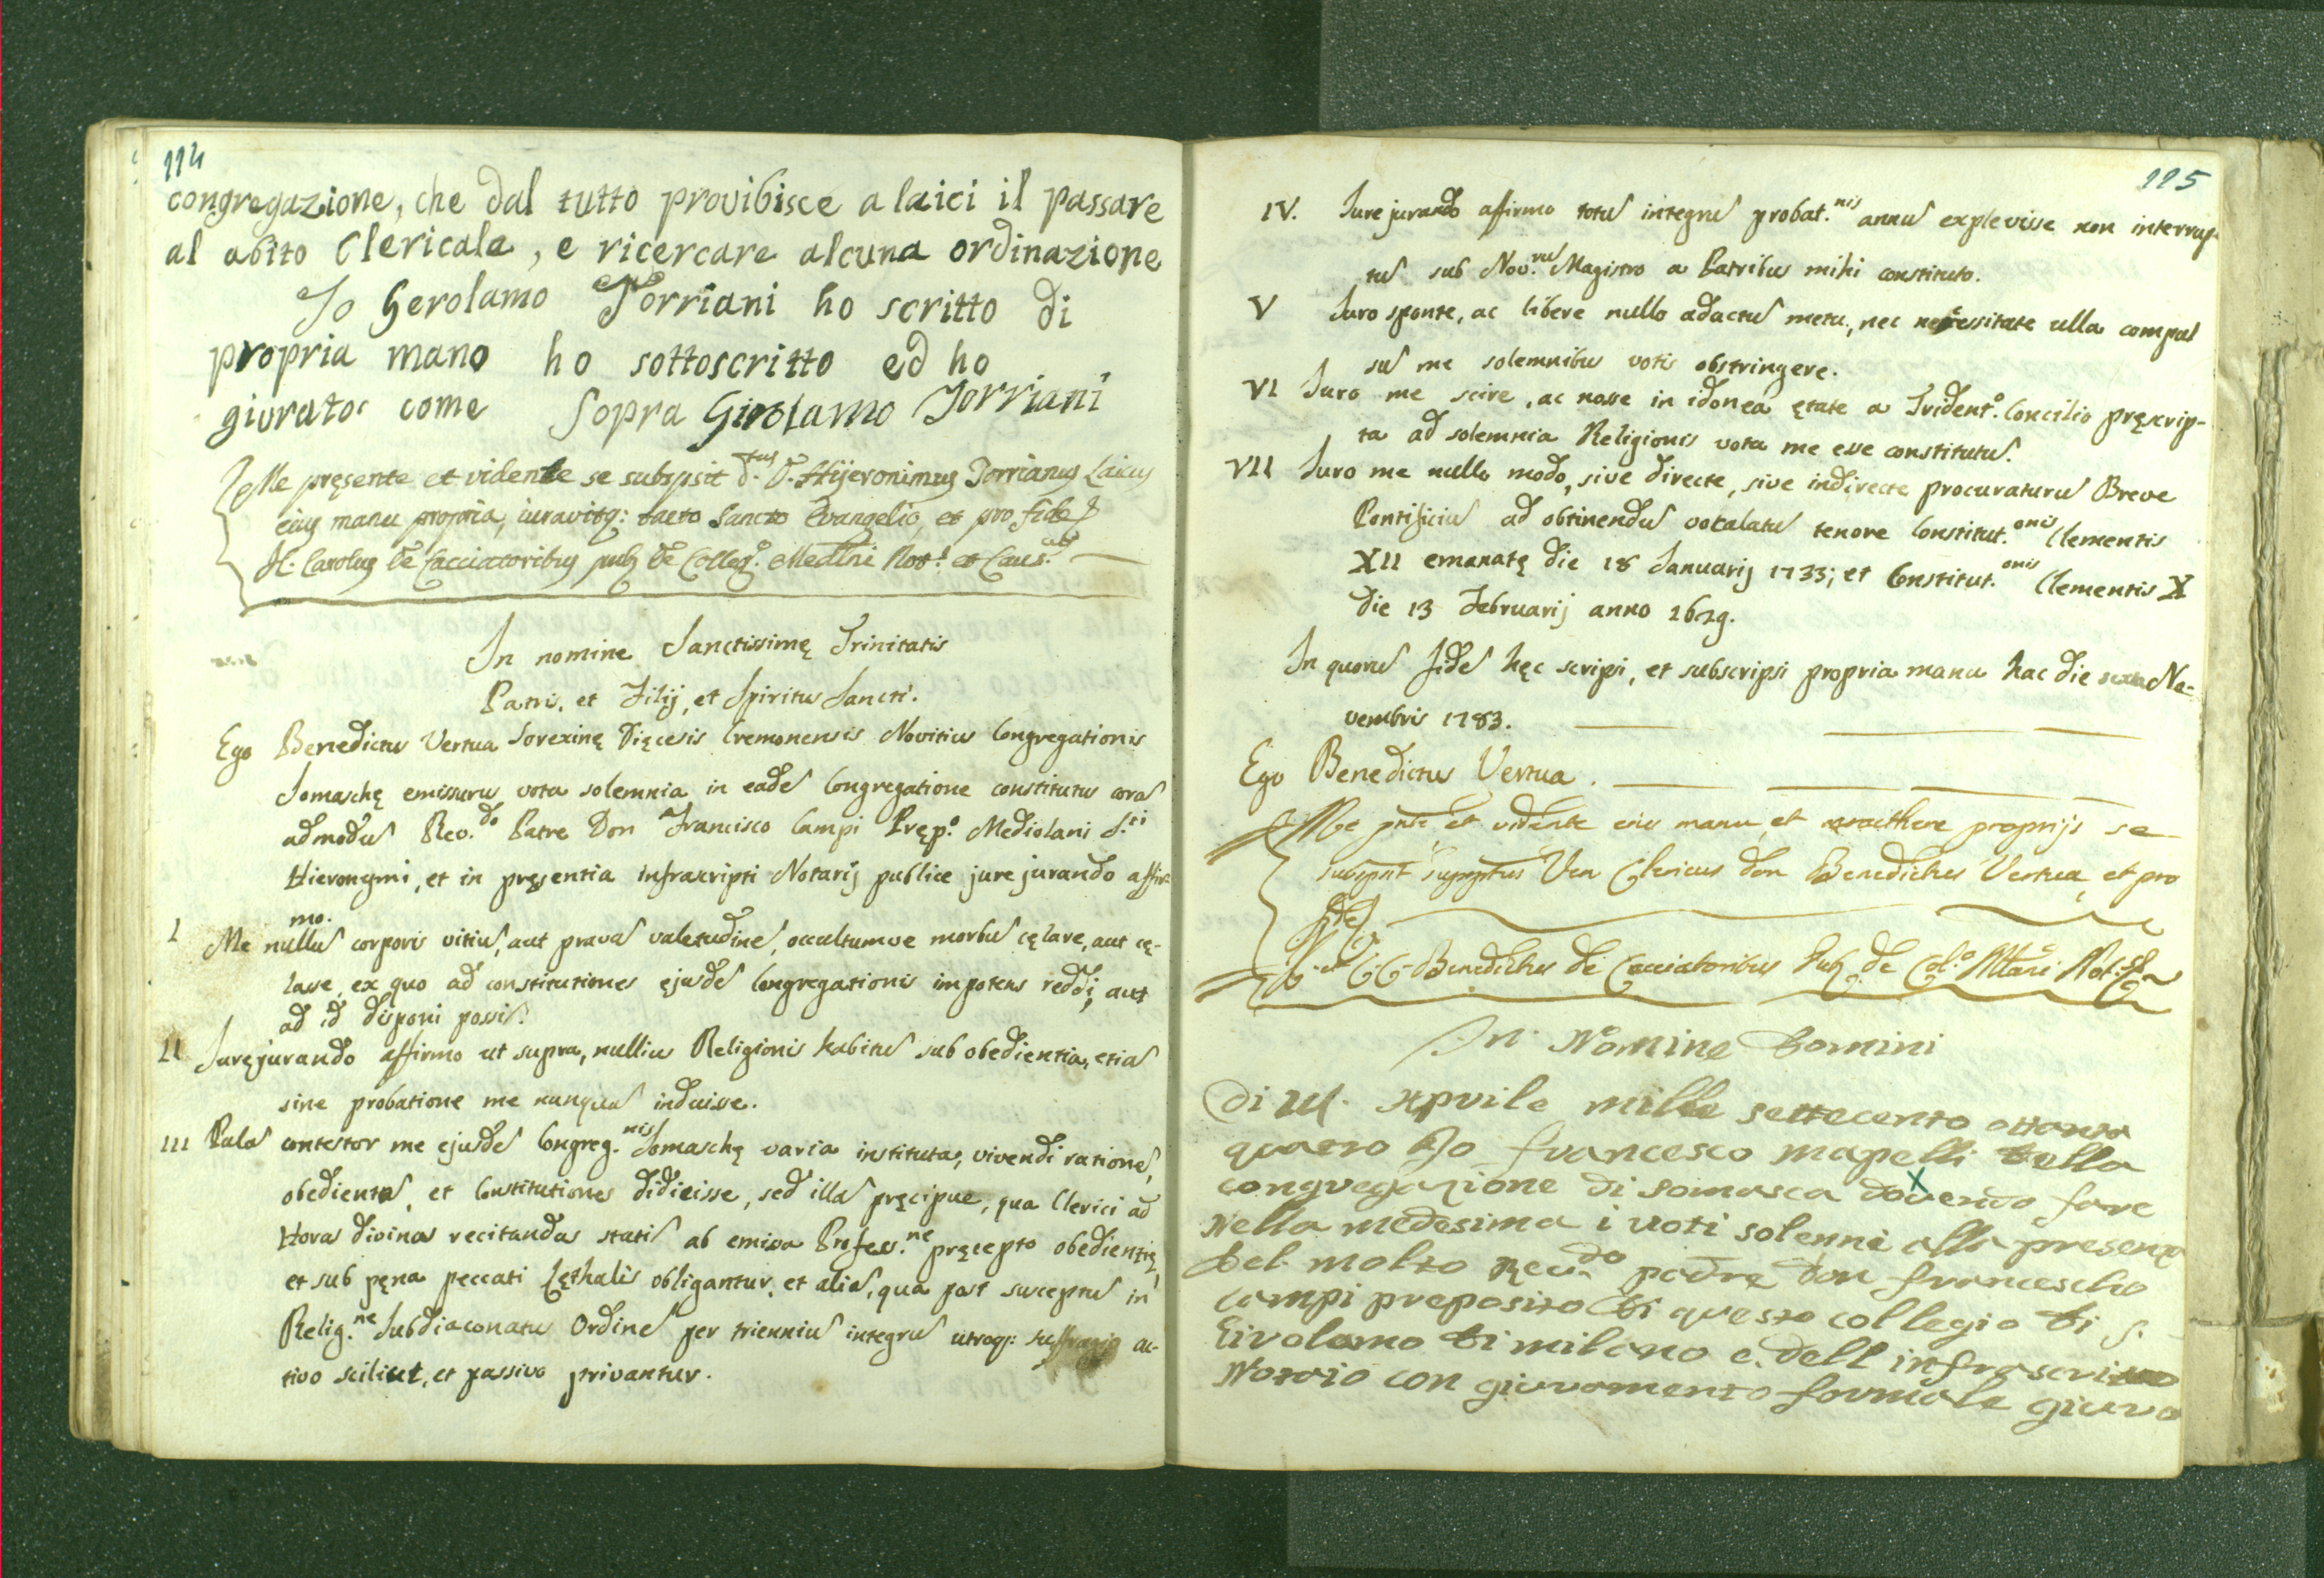 114
congregazione, che dal tutto provibisce a laici il passare
al abito Clericale, e ricercare alcuna ordinazione
Io Gerolamo Torriani ho scritto di
propria mano ho sottoscritto ed ho
giurato come sopra Girolamo Torriani
Me pręsente et vidente se subspsit d.tus D. Hijeronimus Torrianus Laicus
eius manu propria, iuravitq: tacto Sancto Evangelio, et pro fide
Carolus de Cacciatoribus pub de Colleg.o Medlni Not.s et Caus.cus
In nomine Sanctissimę Trinitatis
Patris, et Filij, et Spiritus Sancti.
Ego Benedictus Vertua Sorexinę Dięcesis Cremonensis Novitius Congregationis
Somaschę emissurus vota solemnia in eadē Congregatione constitutus corā
admodū Rev.do Patre Don Francisco Campi Pręp.o Mediolani S.ti
Hieronymi, et in pręsentia infrascripti Notarij publice jure jurando affir
mo.
I Me nullū corporis vitiū, aut pravā valetudinē, occultumve morbū cęlare, aut cę-
lasse, ex quo ad constitutiones ejusdē Congregationis impotens reddi, aut
ad id disponi possī.
II Juręjurando affirmo ut supra, nullius Religionis habitū sub obedientia, etiā
sine probatione me nunquā induisse.
III Palā contestor me ejusdē Congreg.nis Somaschę varia instituta, vivendi rationē,
obedientiā, et Constitutiones didicisse, sed illā pręcipue, qua Clerici ad
Horas divinas recitandas statī ab emissa Profess.ne pręcepto obedientię,
et sub pęna peccati lęthalis obligantur, et aliā, qua post susceptū in
Relig.ne Subdiaconatus Ordinē per trienniū integrū utroq: suffragio ac-
tivo scilicet, et passivo privantur.
115
IV. Jure jurando affirmo totū integrū probat.nis annū explevisse non interrup-
tū sub Nov.rū Magistro a Patribus mihi constituto.
V Juro sponte, ac libere nullo adactū metu, nec necessitate ulla compul
sū me solemnibus votis obstringere.
VI Juro me scire, ac nosse in idonea ętate a Trident.o Concilio pręscrip-
ta ad solemnia Religionis vota me esse constitutū.
VII Juro me nullo modo, sive directe, sive indirecte procuraturū Breve
Pontificiū ad obtinendū vocalatū tenore Constitut.onis Clementis
XII emanatę die 18 Januarij 1733; et Constitut.onis Clementis X
die 13 Februarij anno 1679.
In quorū fidē hęc scripsi, et subscripsi propria manu hac die No-
vembris 1783.
Ego Benedictus Vertua.
Me pnte et vidente eius manu, et carecthere proprijs se
subspsit suppstus Ven Clericus don Benedictus Vertua, et pro
fide
Benedictus de Cacciatoribus Pub. de Col.o Mlani Not.
In Nomine Domini
di Apvile mille settecento ottanta
quatro Io francesco mapelli della
congvegazione di somasca dovendo fare
nella medesima i voti solenni alla presenza
del molto Reu.do padre don francescho
campi preposito di questo collegio di S.
Girolamo di milano e dell infrascritto
Notaio con giuramento formale giuro